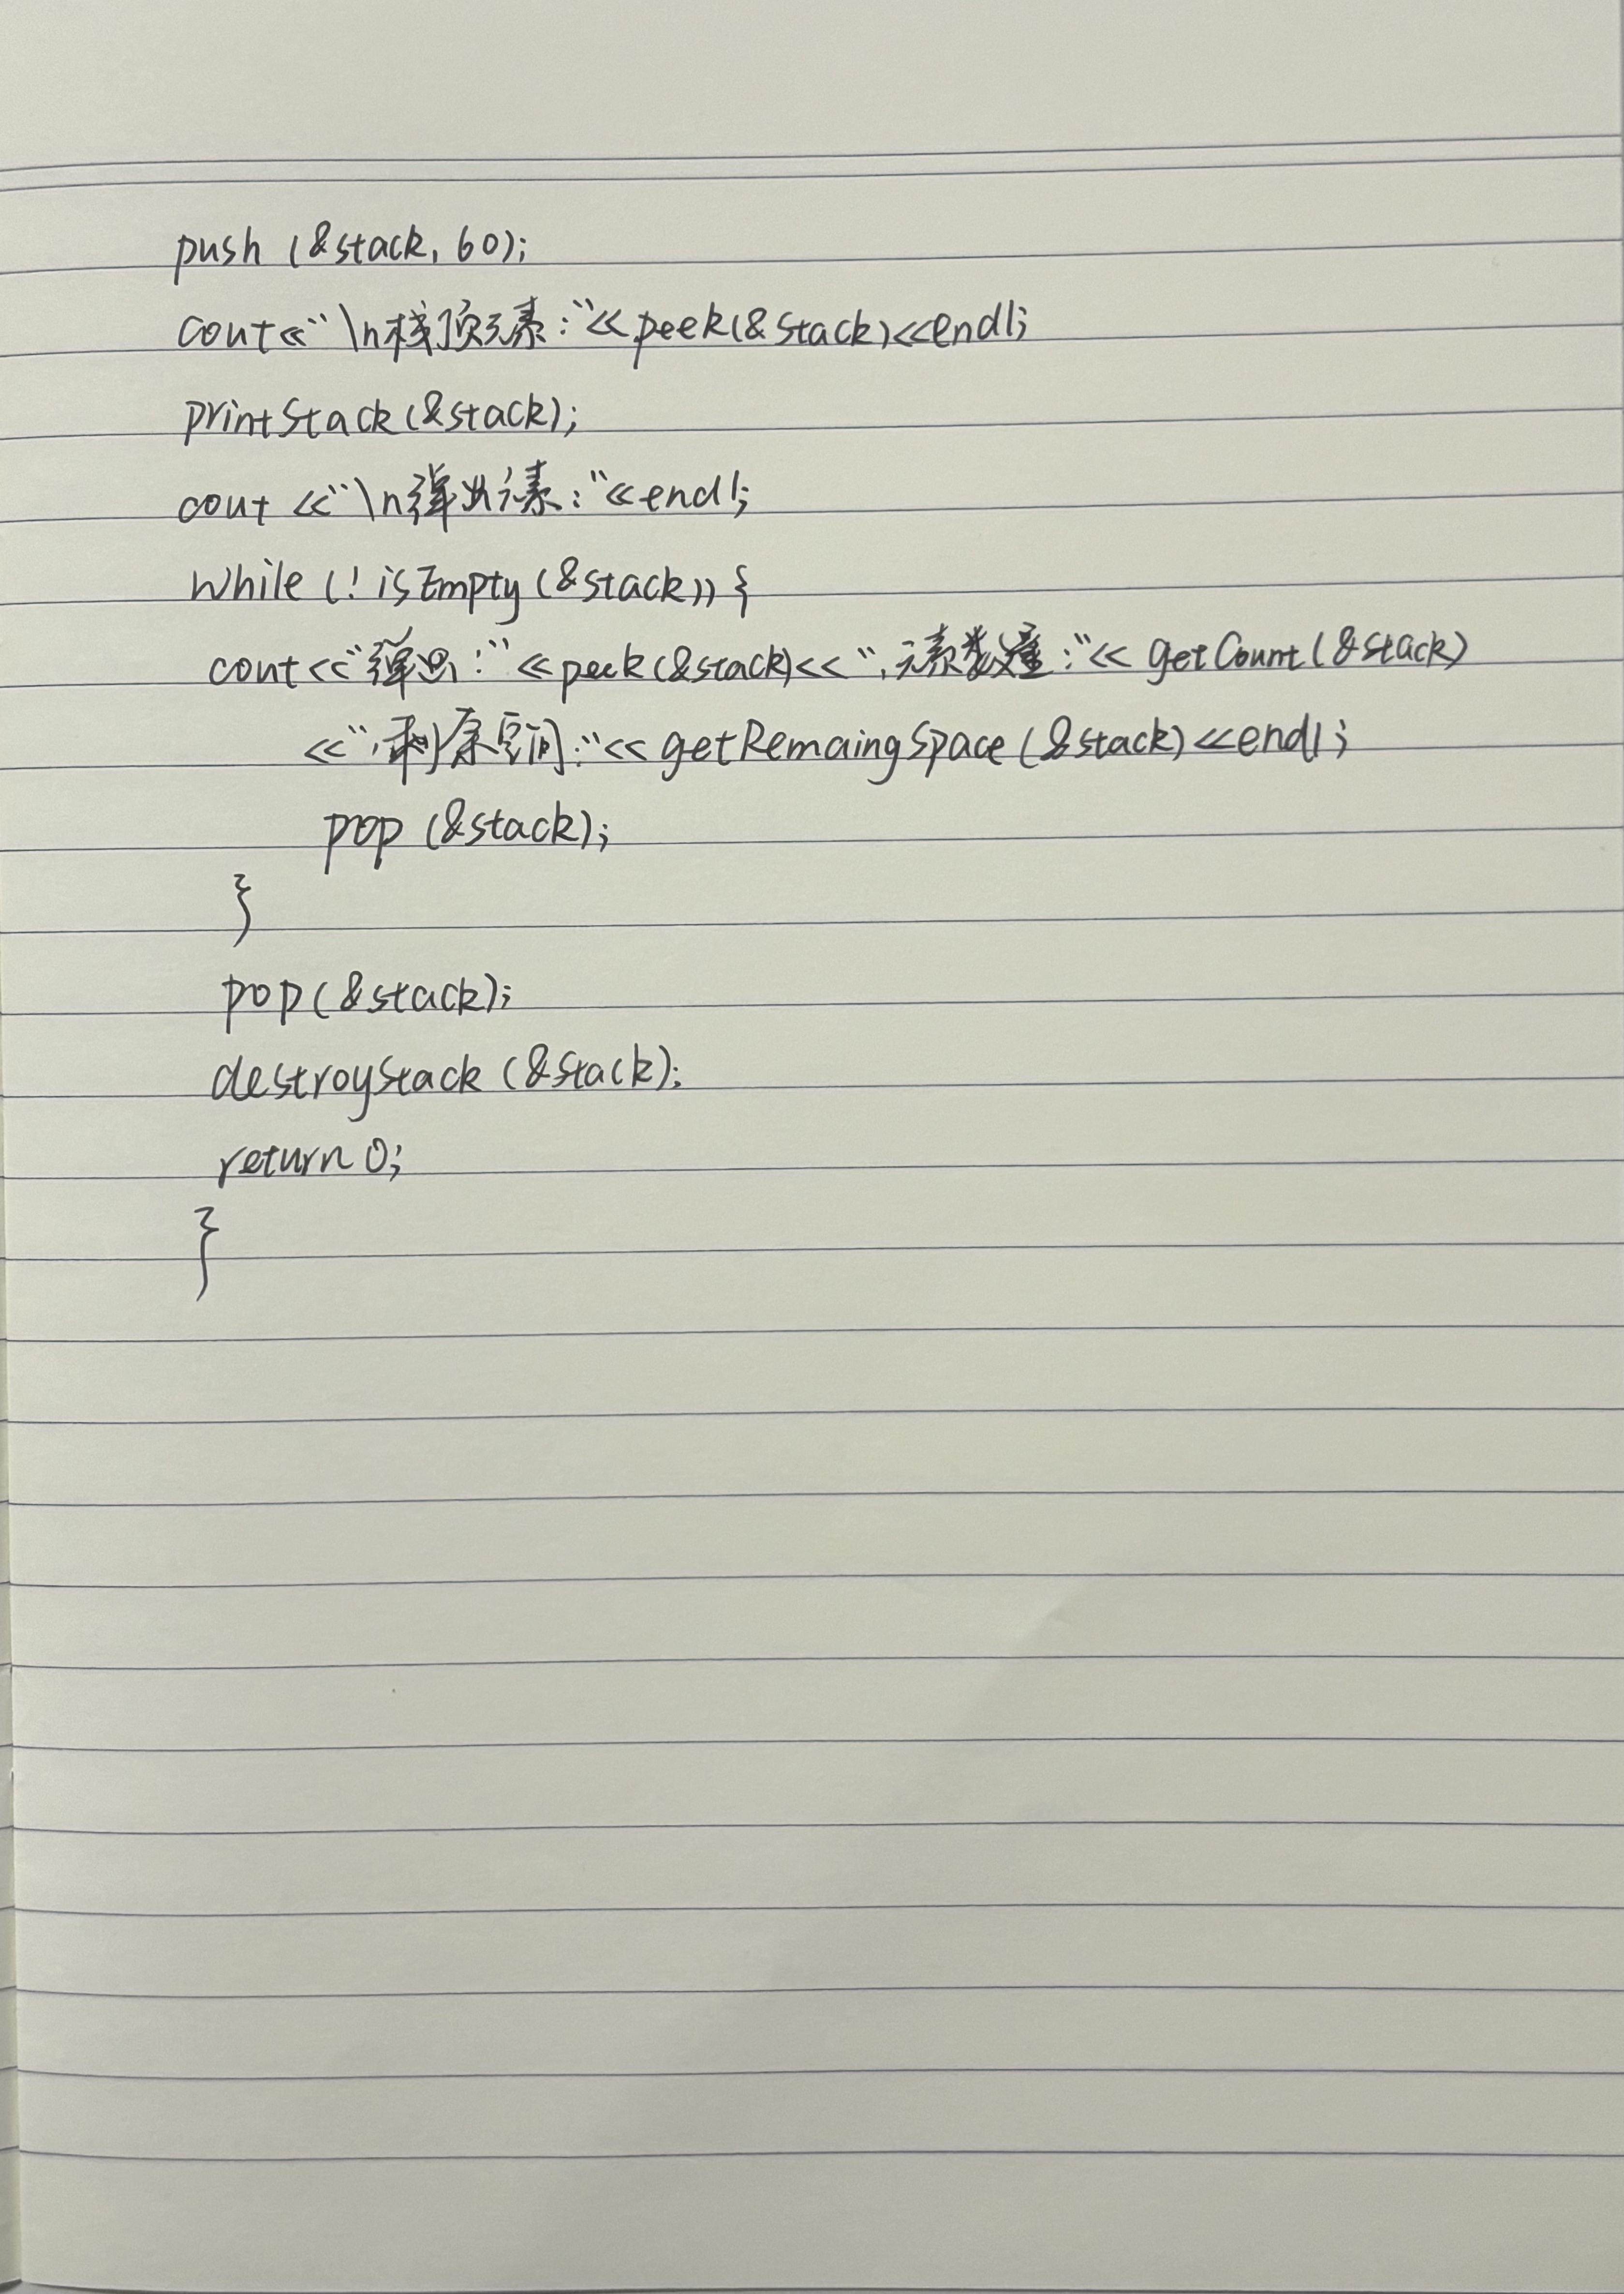 push (&stack, 60);
cout<<"\n栈顶元素:"<<peek(&stack)<<endl;
printStack(&stack);
cout <<"\n弹出元素:"<<endl;
while (! isEmpty (&stack)) {
cout<<"弹出:"<<peek(&stack)<<",元素数量:"<< getCount(&stack)
<<",剩余空间:"<<getRemaingSpace(&stack)<<endl;
pop (&stack);
}
pop(&stack);
destroystack (&stack);
return 0;
}